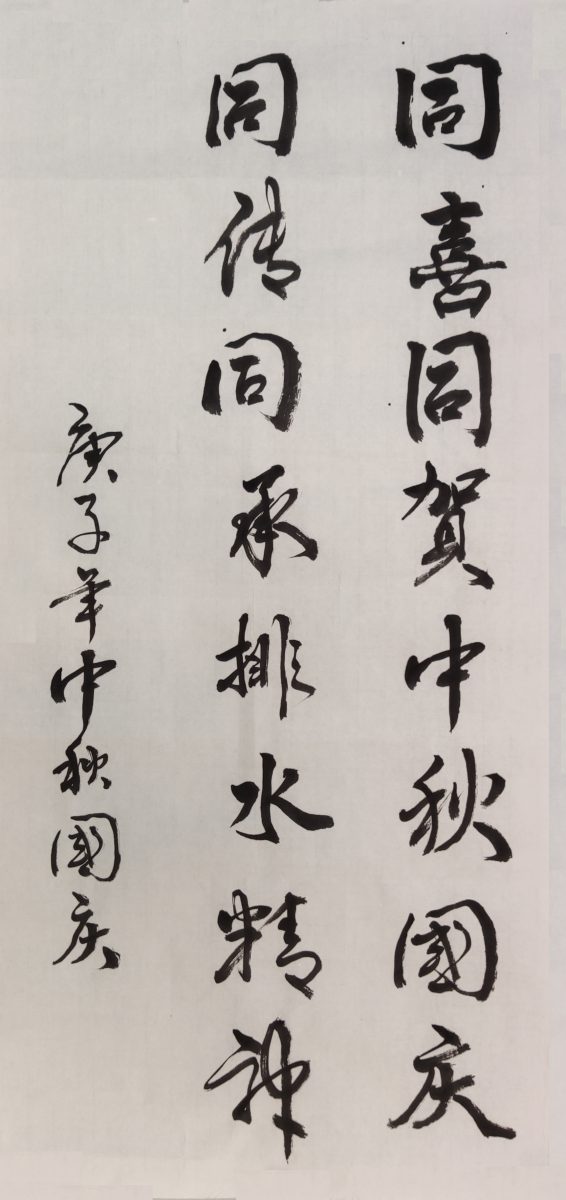 同喜同贺中秋國庆
同传同承排水精神
庚子年中秋國庆